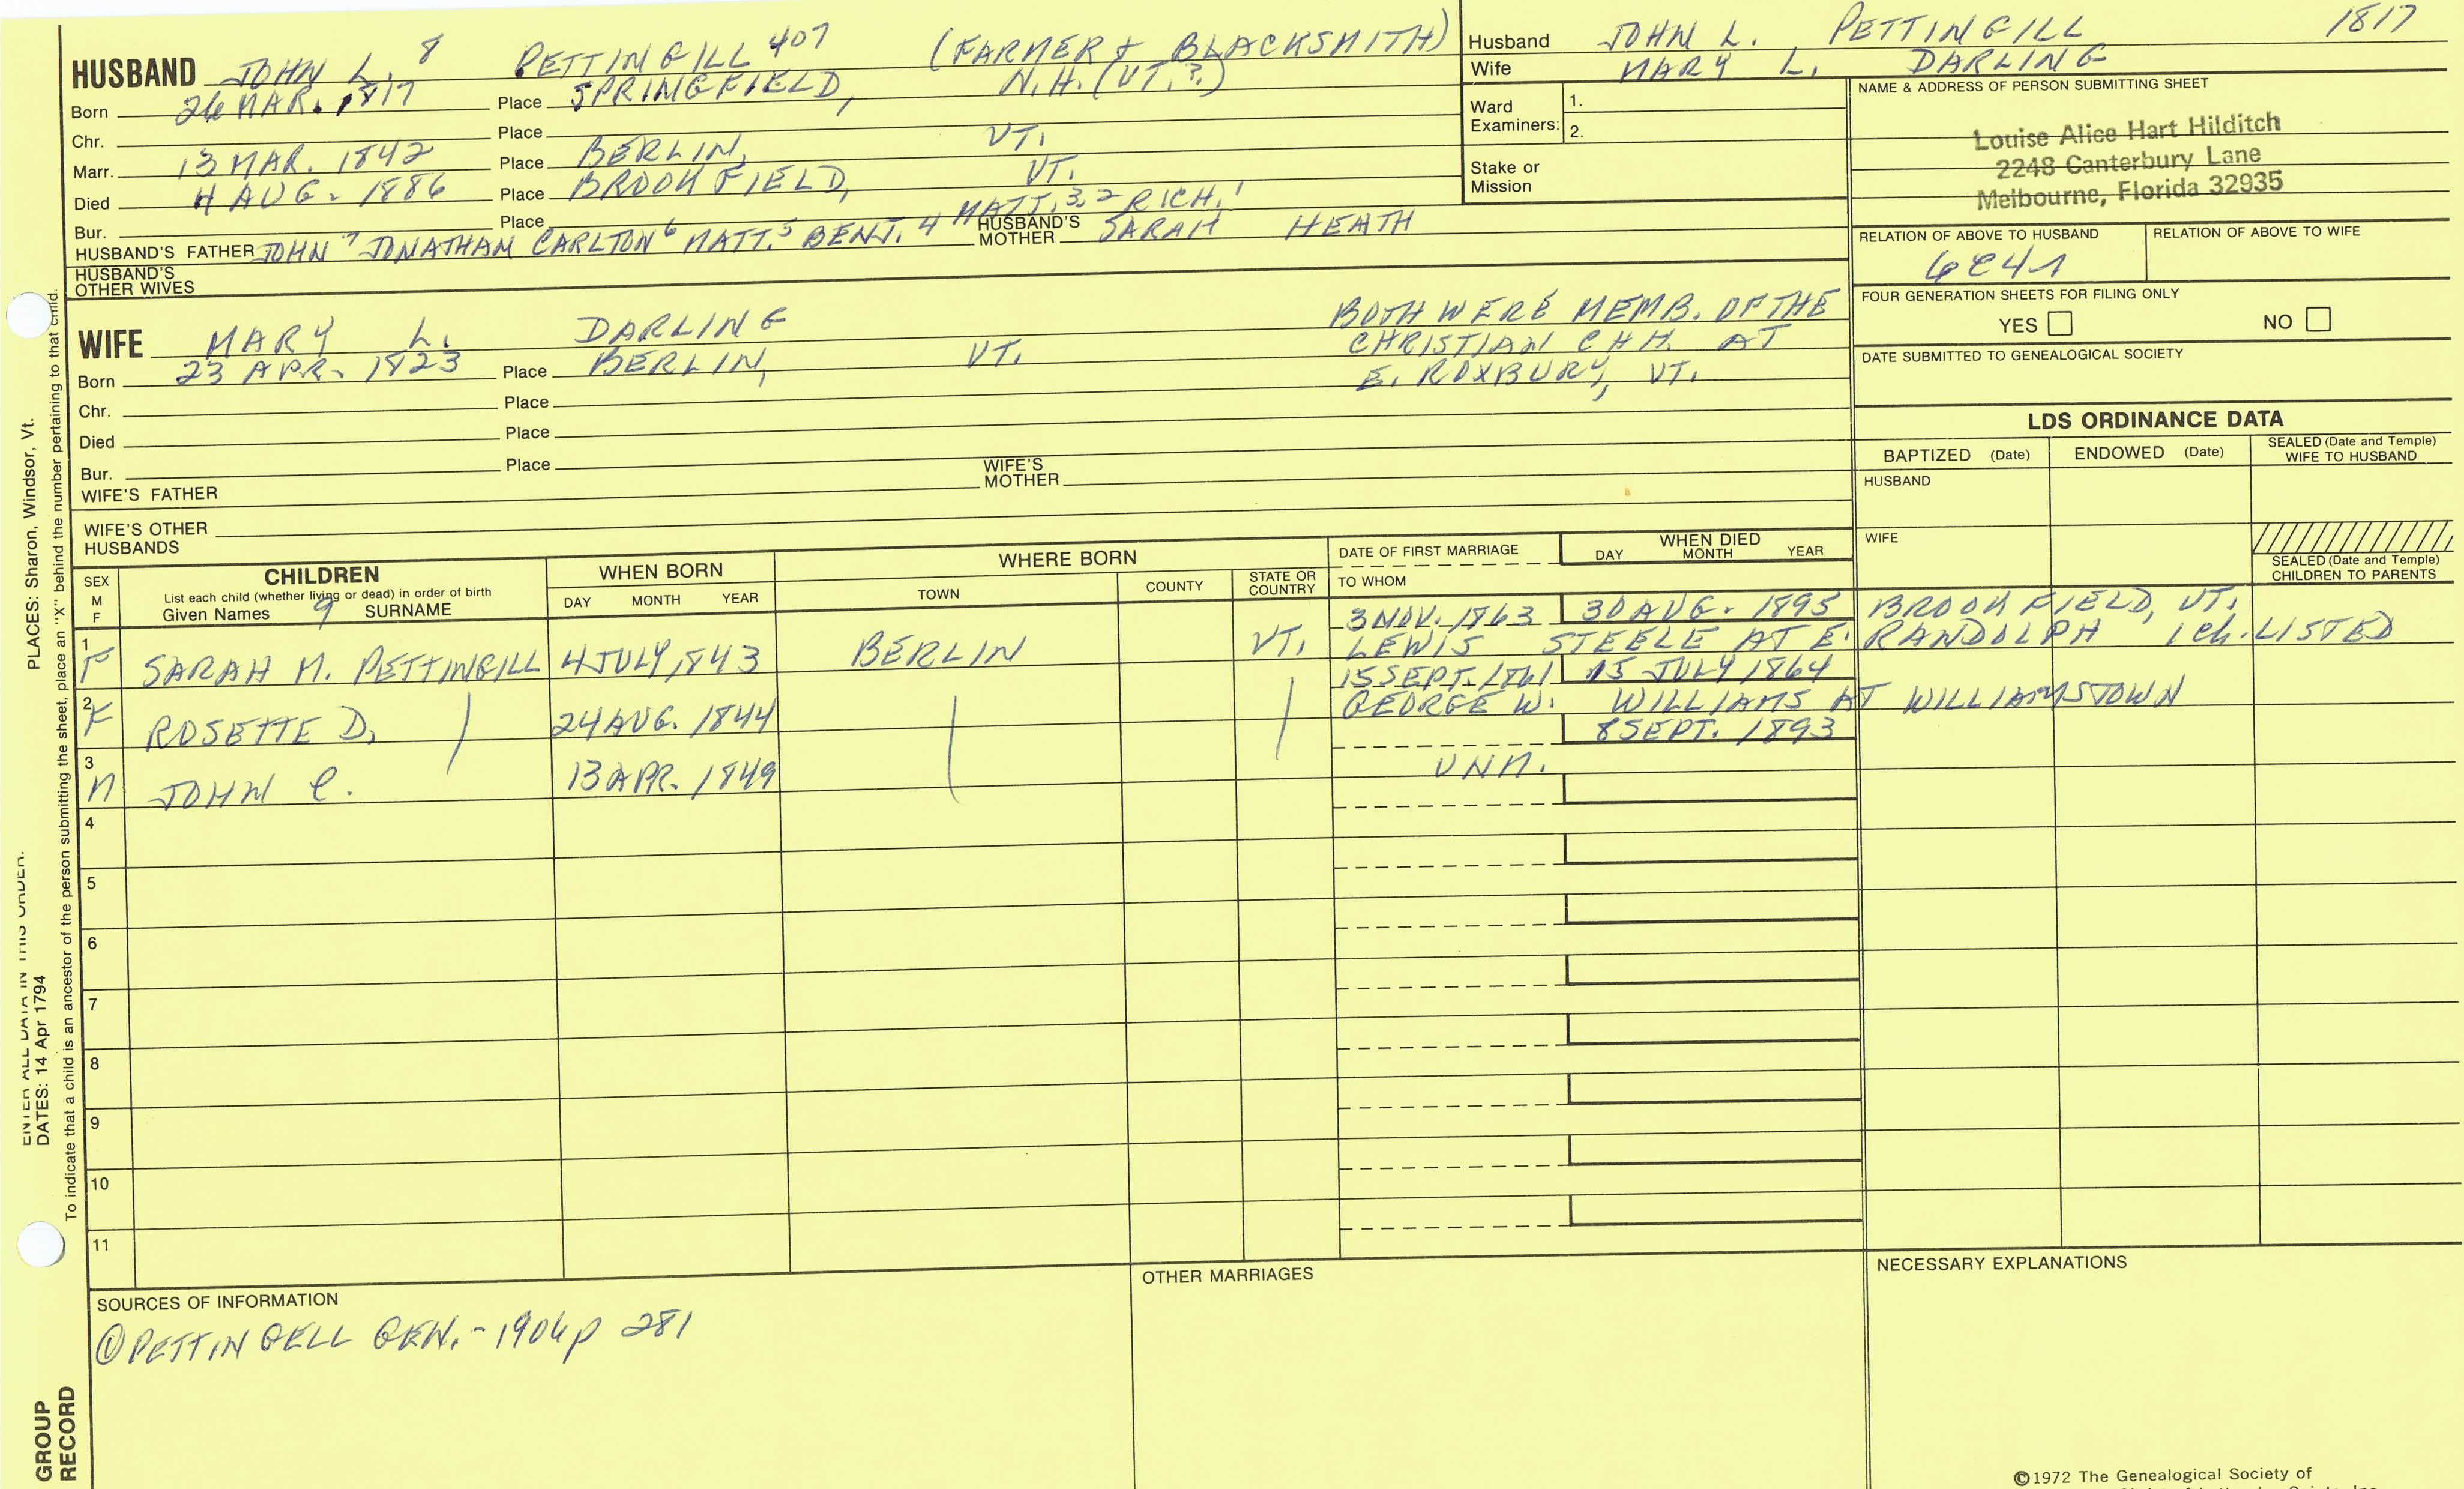 HUSBAND JOHN L. 8 PETTINGILL 407 (FARMER & BLACKSMITH)
Born 26 MAR. 1817 Place SPRINGFIELD, N.H. (VT.?)
Chr. Place
Marr. 13 MAR. 1842 Place BERLIN, VT.
Died 4 AUG. 1886 Place BROOKFIELD, VT.
Bur. Place
HUSBAND'S FATHER JOHN 7 JONATHAM CARLTON 6 MATT. 5 BENJ. 4 MATT. 3, 2 RICH. 1 HUSBAND'S MOTHER SARAH HEATH
HUSBAND'S OTHER WIVES
WIFE MARY L. DARLING
Born 23 APR. 1823 Place BERLIN, VT.
Chr. Place
Died Place
Bur. Place
WIFE'S FATHER WIFE'S MOTHER
WIFE'S OTHER HUSBANDS
BOTH WERE MEMB. OF THE
CHRISTIAN CHH. AT
E. ROXBURY, VT.
Husband JOHN L. PETTINGILL 1817
Wife MARY L. DARLING
Ward Examiners: 1.
2.
Stake or Mission
NAME & ADDRESS OF PERSON SUBMITTING SHEET
Louise Alice Hart Hilditch
2248 Canterbury Lane
Melbourne, Florida 32935
RELATION OF ABOVE TO HUSBAND RELATION OF ABOVE TO WIFE
FOUR GENERATION SHEETS FOR FILING ONLY
YES NO
DATE SUBMITTED TO GENEALOGICAL SOCIETY
LDS ORDINANCE DATA
BAPTIZED (Date) ENDOWED (Date) SEALED (Date and Temple) WIFE TO HUSBAND
HUSBAND
WIFE
SEALED (Date and Temple) CHILDREN TO PARENTS
SEX M F
CHILDREN
List each child (whether living or dead) in order of birth
Given Names 9 SURNAME
WHEN BORN
DAY MONTH YEAR
WHERE BORN
TOWN COUNTY STATE OR COUNTRY
DATE OF FIRST MARRIAGE
TO WHOM
WHEN DIED
DAY MONTH YEAR
3 NOV. 1863 30 AUG. 1895 BROOKFIELD, VT.
1 F SARAH M. PETTINGILL 4 JULY 1843 BERLIN VT. LEWIS STEELE AT E. RANDOLPH 1 Ch. LISTED
15 SEPT. 1861 15 JULY 1864
2 F ROSETTE D. 24 AUG. 1844 GEORGE W. WILLIAMS AT WILLIAMSTOWN
8 SEPT. 1893
3 M JOHN C. 13 APR. 1849 UNM.
4
5
6
7
8
9
10
11
SOURCES OF INFORMATION
① PETTINGELL GEN. - 1906 p 281
OTHER MARRIAGES
NECESSARY EXPLANATIONS
©1972 The Genealogical Society of
PLACES: Sharon, Windsor, Vt.
ENTER ALL DATA IN THIS ORDER:
DATES: 14 Apr 1794
To indicate that a child is an ancestor of the person submitting the sheet, place an "X" behind the number pertaining to that child.
GROUP
RECORD